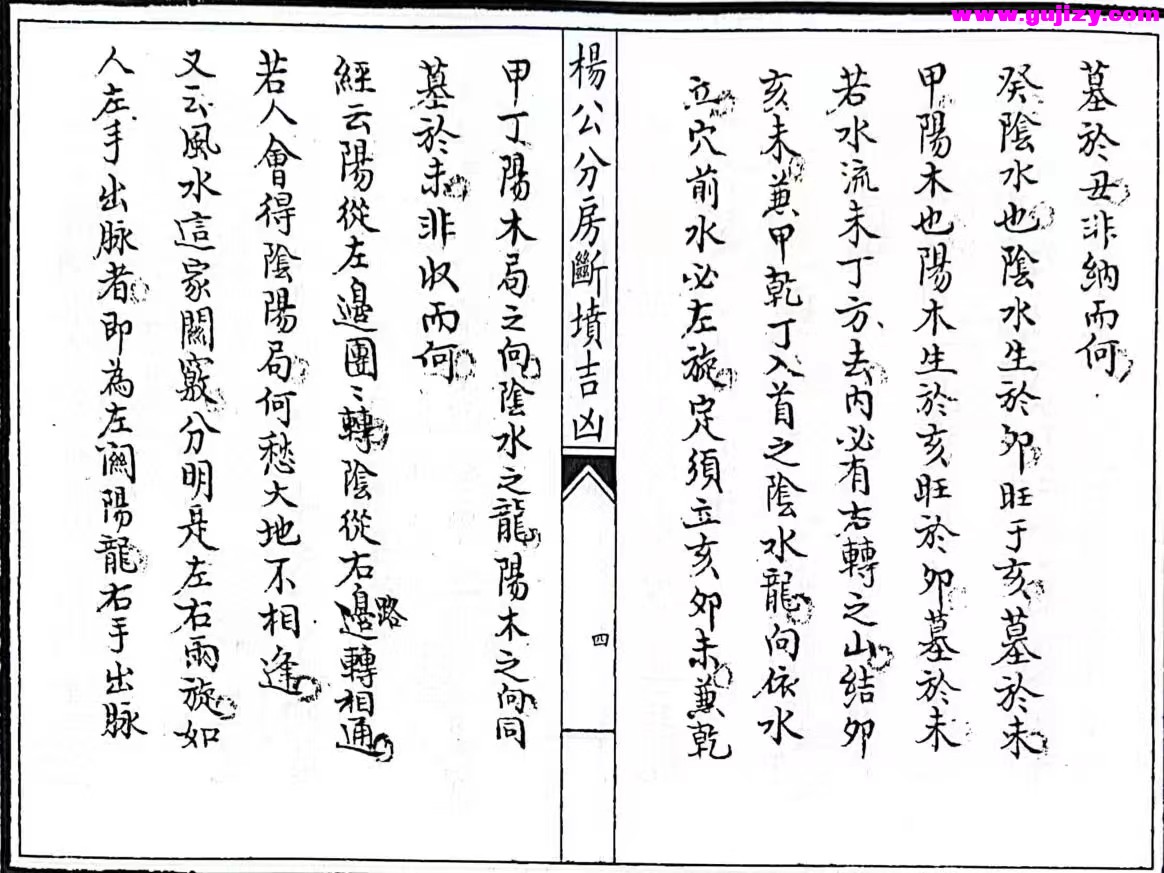 www.gujizy.com
墓於丑非納而何
癸陰水也陰水生於卯旺于亥墓於未
甲陽木也陽木生於亥旺於卯墓於未
若水流未丁方去內必有右轉之山結卯
亥未兼甲乾丁入首之陰水龍向依水
立穴前水必左旋定須立亥卯未兼乾
楊公分房斷墳吉凶
四
甲丁陽木局之向陰水之龍陽木之向同
墓於未非收而何
經云陽從左邊團〻轉陰從右邊路轉相通
若人會得陰陽局何愁大地不相逢
又云風水這家關竅分明是左右兩旋如
人左手出脉者即為左關陽龍右手出脉